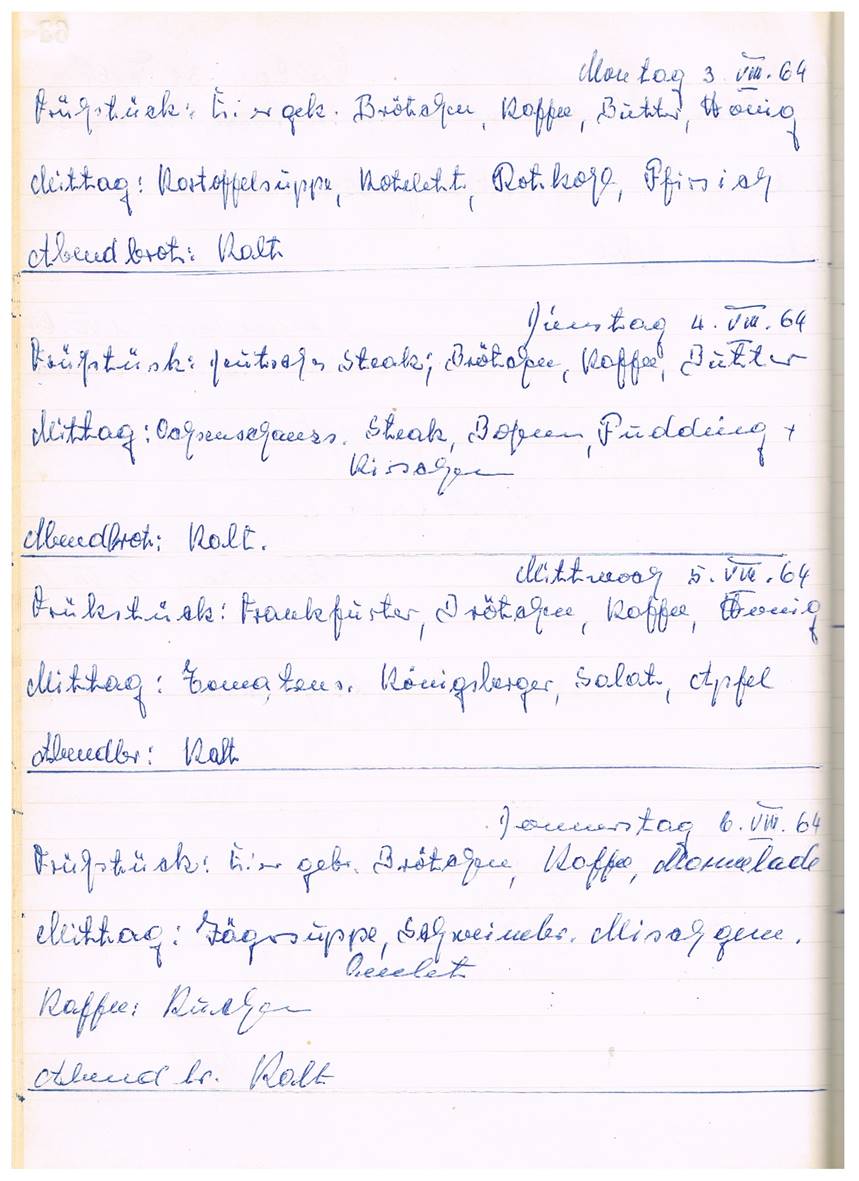 Montag 3. VIII. 64
Frühstück: Eier gek. Brötchen, Kaffee, Butter, Honig
Mittag: Kartoffelsuppe, Kotelett, Rotkohl, Pfirsich
Abendbrot: Kalt
Dienstag 4. VIII. 64
Frühstück: deutsches Steak; Brötchen, Kaffee, Butter
Mittag: Ochsenschwanzs. Steak, Bohnen, Pudding +
Kirschen
Abendbrot: Kalt.
Mittwoch 5. VIII. 64
Frühstück: Frankfurter, Brötchen, Kaffee, Honig
Mittag: Tomatens. Königsberger, Salat, Apfel
Abendbr: Kalt
Donnerstag 6. VIII. 64
Frühstück: Eier gebr. Brötchen, Kaffee, Marmelade
Mittag: Jägersuppe, Schweinebr. Mischgem.
Omlet
Kaffee: Kuchen
Abendbr. Kalt